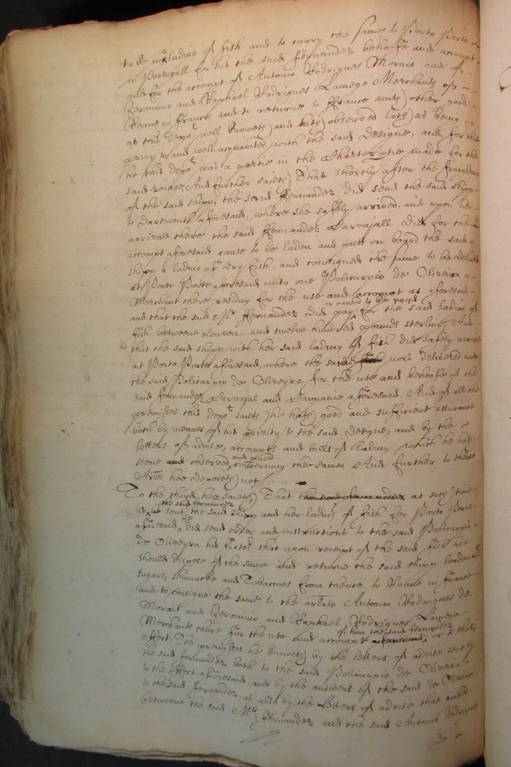 to be laden of fish and to carry the same to Porto Porte
in Portugall for his the said fernandez behoofe and account
and for the account of Antonio Rodrigues Morais and of
Geronimo and Raphael Rodrigues Lamego Merchants of
Roane in france and to returne to ffrance with other goods
at this depot well knoweth and hath observed
privy to and well acquainted with the said designe, and for that
he this depot was a partie in the Charter partie made for the
said voiage And further saieth That shortly after the fraighting
of the said shipp, the said ffernandez did send the said shipp
to dartmouth aforesaid, where she safely arrived, and upon her
arrivall there the said ffernandez Carvajall did for the
account aforesaid cause to be laden and putt on board the said
shipp a lading of dry fish, and consigned the same to be delivered
at Porto Porte aforesaid unto one Policarpio de Oliveira a
Merchant there residing for the use and account as aforesaid
and that the said Mr ffernandez did pay or caused to be payd for the said lading of
fish betweene eleaven and twelve hundred pounds sterling And
that the said shipp with her said lading of fish did safely arrive
at Porto Porte aforesaid, where the same was delivered unto
the said Policarpio de Oliveyra for the use and behoofe of the
said fernandez Carvajal and Companie aforesaid. And of all the
premisses this depot saith he hath good and sufficient assurance
both by meanes of his privity to the said designe, and by the
letters of advise, accounts and bills of lading which he hath
seene and observed, and perused concerning the same And further to these
Arles he deposeth not
To the third hee saieth That at such time
as the said ffernandez sent the said shipp and her lading of fish for Porto Porte
aforesaid, he did send order and instructions to the said Policarpio
de Oliveyra his factor that upon receipt of the said fish hee
should dispose of the same and returne the said shipp laden with
sugars, shumacke and Tobaccoes from thence to Roane in france
and to consigne the same to the arlate Antonio Rodrigues de
Morais and Geronimo and Raphael Rodrigues Lamego
Merchants there for the use and account of him the said fernandez, or to that
effect The premisses he knoweth by the letters of advise sent by
the said fernandez both to the said Policarpio de Oliveira
to the effect aforesaid, and by the answers of the said de Oliveira
to the said fernandez, as also by the letters of advise that
betweene the said Mr ffernandez and the said Antonio Rodrigues
de